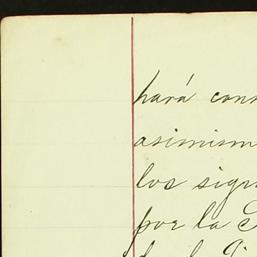 hará con
asimism
los sign
por la S